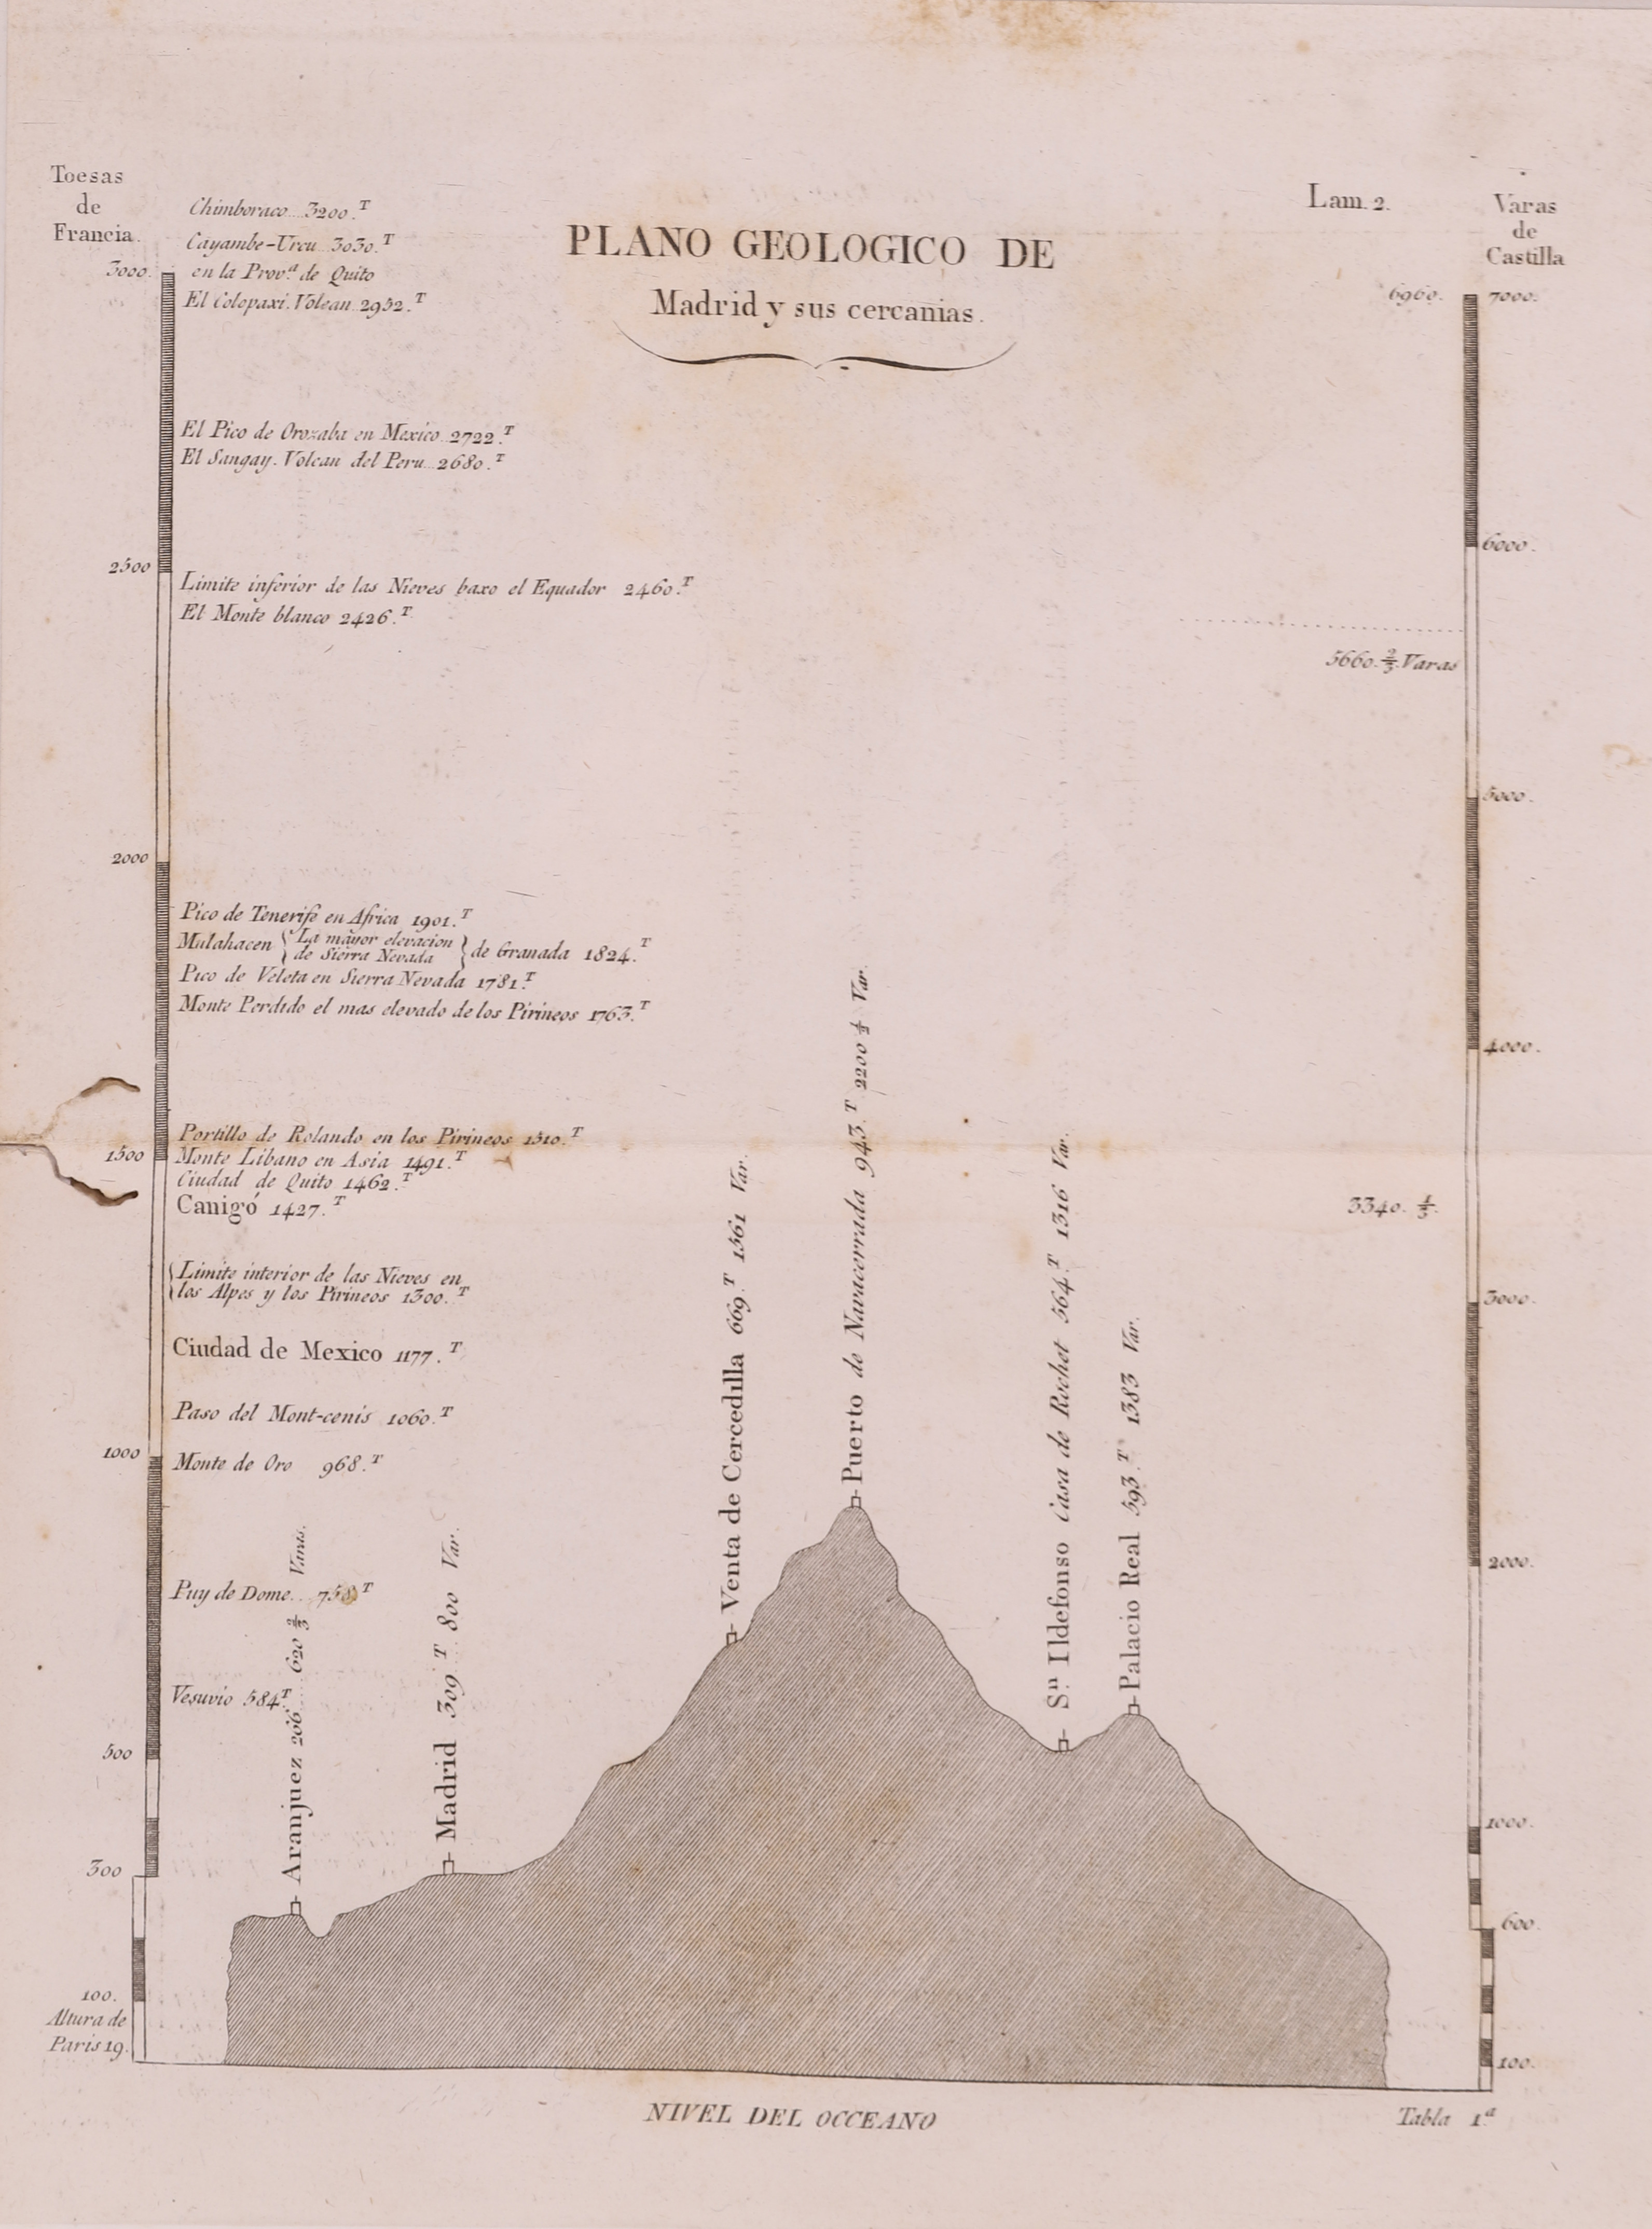 Toesas
de
Francia.
Chimboraco....3200.T
Cayambe-Urcu..3030.T
en la Prov.a de Quito
El Colopaxi.Volcan..2952.T
PLANO GEOLOGICO DE
Madrid y sus cercanias.
Lam. 2.
Varas
de
Castilla
3000.
6960.
7000.
El Pico de Orozaba en Mexico..2722.T
El Sangay. Volcan del Peru...2680.T
6000.
2500
Limite inferior de las Nieves baxo el Equador 2460.T
El Monte blanco 2426.T
5660.2/3.Varas
5000.
2000
Pico de Tenerife en Africa 1901.T
Mulahacen { La mayor elevacion
de Sierra Nevada } de Granada 1824.T
Pico de Veleta en Sierra Nevada 1781.T
Monte Perdido el mas elevado de los Pirineos 1763.T
4000.
Portillo de Rolando en los Pirineos 1510.T
1500
Monte Libano en Asia 1491.T
Ciudad de Quito 1462.T
Canigó 1427.T
3340. 1/3.
{ Limite interior de las Nieves en
los Alpes y los Pirineos 1300.T
3000.
Ciudad de Mexico 1177.T
Paso del Mont-cenis 1060.T
1000
Monte de Oro 968.T
2000.
Puy de Dome...758.T
Vesuvio 584.T
500
1000.
300
600.
100.
Altura de
Paris 19.
100.
Aranjuez 206.....620 2/3 Varas.
Madrid 309 T....800 Var.
Venta de Cercedilla 669.T 1561 Var.
Puerto de Navacerrada 943.T 2200 1/3 Var.
Sn Ildefonso Casa de Rochet 564.T 1316 Var.
Palacio Real 593.T 1383 Var.
NIVEL DEL OCCEANO
Tabla 1.a